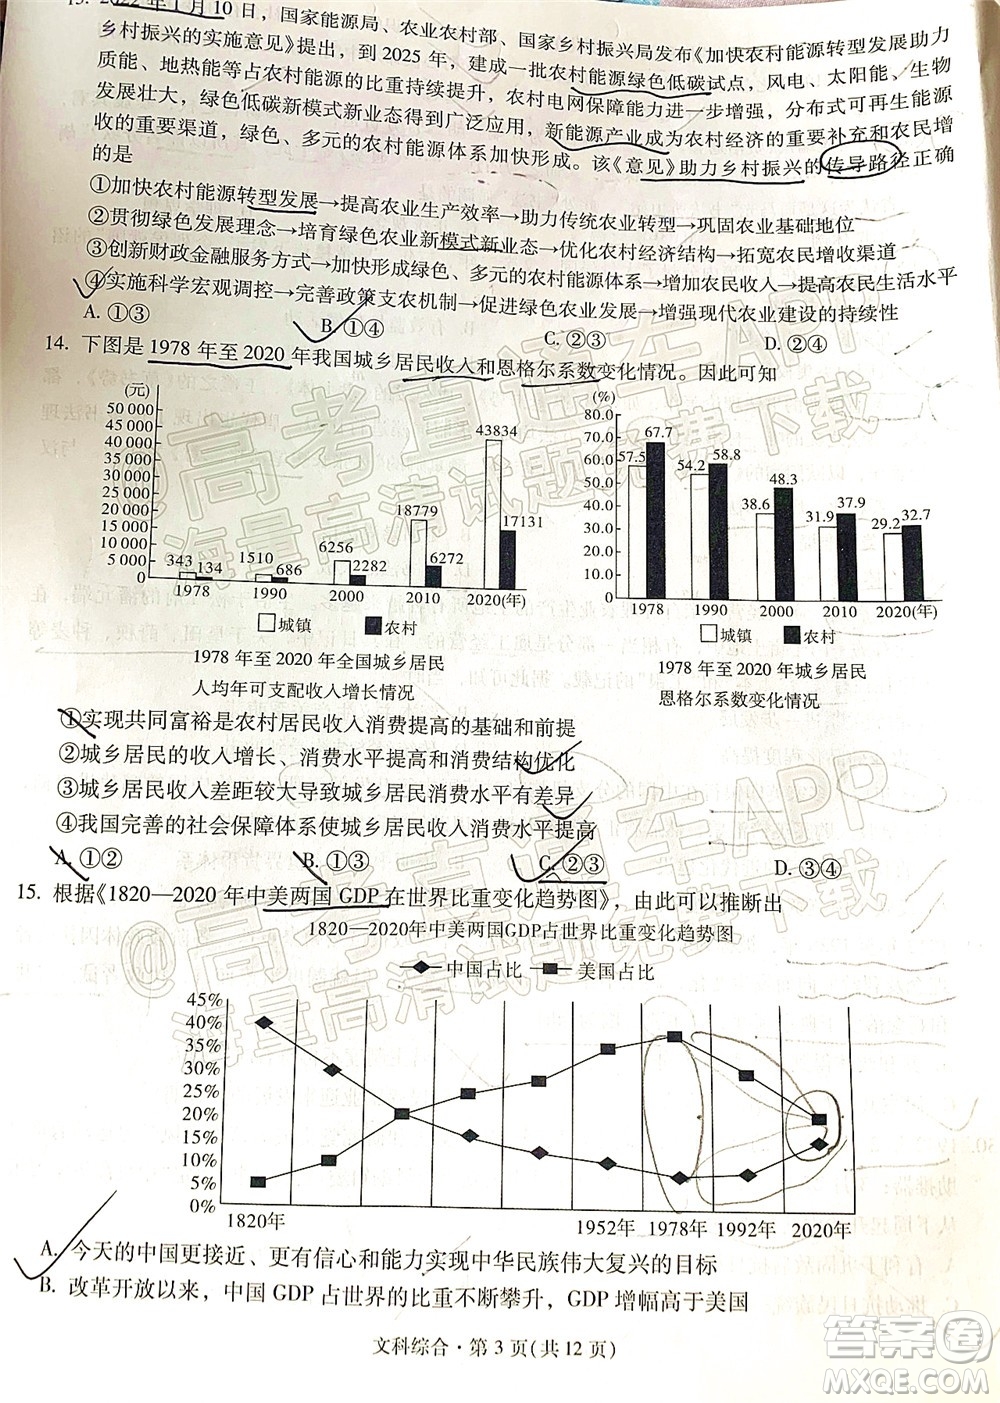 13. 2022年1月10日，国家能源局、农业农村部、国家乡村振兴局发布《加快农村能源转型发展助力
乡村振兴的实施意见》提出，到 2025 年，建成一批农村能源绿色低碳试点，风电、太阳能、生物
质能、地热能等占农村能源的比重持续提升，农村电网保障能力进一步增强，分布式可再生能源
发展壮大，绿色低碳新模式新业态得到广泛应用，新能源产业成为农村经济的重要补充和农民增
收的重要渠道，绿色、多元的农村能源体系加快形成。该《意见》助力乡村振兴的传导路径正确
的是
①加快农村能源转型发展→提高农业生产效率→助力传统农业转型→巩固农业基础地位
②贯彻绿色发展理念→培育绿色农业新模式新业态→优化农村经济结构→拓宽农民增收渠道
③创新财政金融服务方式→加快形成绿色、多元的农村能源体系→增加农民收入→提高农民生活水平
④实施科学宏观调控→完善政策支农机制→促进绿色农业发展→增强现代农业建设的持续性
A. ①③ B. ①④ C. ②③ D. ②④
14. 下图是 1978 年至 2020 年我国城乡居民收入和恩格尔系数变化情况。因此可知
(元) (%)
50 000 80.0
45 000 70.0
40 000 60.0
35 000 50.0
30 000 40.0
25 000 30.0
20 000 20.0
15 000 10.0
10 000 0.0
5 000
0
343 134 1510 686 6256 2282 18779 6272 43834 17131
57.5 67.7 54.2 58.8 38.6 48.3 31.9 37.9 29.2 32.7
1978 1990 2000 2010 2020(年) 1978 1990 2000 2010 2020(年)
城镇 农村 城镇 农村
1978 年至 2020 年全国城乡居民
人均年可支配收入增长情况
1978 年至 2020 年城乡居民
恩格尔系数变化情况
①实现共同富裕是农村居民收入消费提高的基础和前提
②城乡居民的收入增长、消费水平提高和消费结构优化
③城乡居民收入差距较大导致城乡居民消费水平有差异
④我国完善的社会保障体系使城乡居民收入消费水平提高
A. ①② B. ①③ C. ②③ D. ③④
15. 根据《1820—2020 年中美两国 GDP 在世界比重变化趋势图》，由此可以推断出
1820—2020年中美两国GDP占世界比重变化趋势图
中国占比 美国占比
45%
40%
35%
30%
25%
20%
15%
10%
5%
0%
1820年 1952年 1978年 1992年 2020年
A. 今天的中国更接近、更有信心和能力实现中华民族伟大复兴的目标
B. 改革开放以来，中国 GDP 占世界的比重不断攀升，GDP 增幅高于美国
文科综合·第 3 页(共 12 页)
@高考直通车APP
海量高清试题免费下载
@高考直通车APP
海量高清试题免费下载
答案圈
MXQE.COM